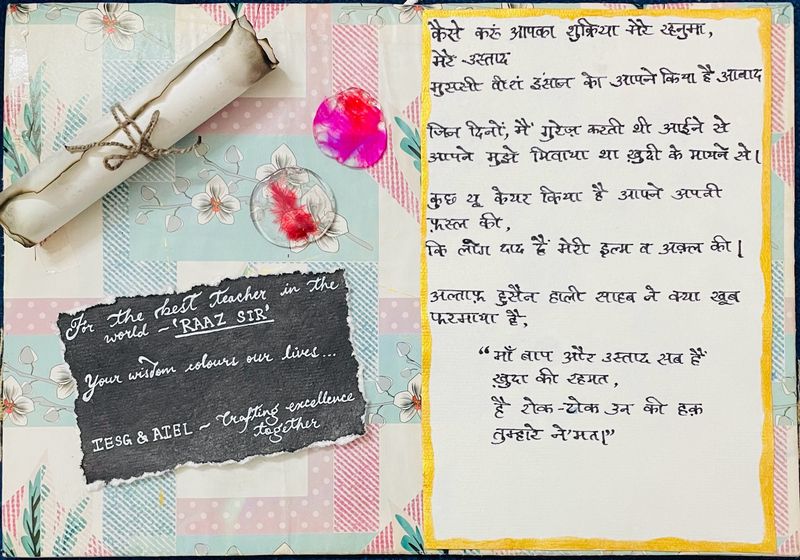 For the best teacher in the
world ~ 'RAAZ SIR'
Your wisdom colours our lives...
IESG & AIEL ~ Crafting excellence
together
कैसे करूं आपका शुक्रिया मेरे रहनुमा,
मेरे उस्ताद
मुससी वीरां इंसान को आपने किया है आबाद
जिन दिनों, मैं गुरेज़ करती थी आईने से
आपने मुझे मिलाया था ख़ुदी के मायने से।
कुछ यू केयर किया है आपने अपनी
फ़स्ल की,
कि लोग दाद दें मेरी इल्म व अक़्ल की।
अल्ताफ़ हुसैन हाली साहब ने क्या खूब
फरमाया है,
"माँ बाप और उस्ताद सब हैं
ख़ुदा की रहमत,
है रोक-टोक उन की हक़
तुम्हारे ने'मत।"